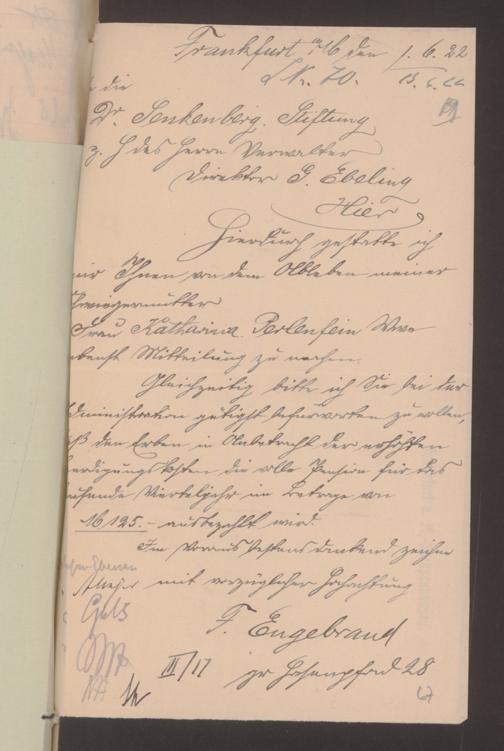 Frankfurt a/M den 1.6.22
J.Nr. 70.
die
Dr. Senkenberg. Stiftung
z. H des Herrn Verwalter
Direktor G. Ebeling
Hier
Hierdurch gestatte ich
mir Ihnen von dem Ableben meiner
Schwiegermutter
Frau Katharina Perlenfein Wwe
ebenst Mitteilung zu machen.
Gleichzeitig bitte ich Sie bei der
Administration gütigst befürworten zu wollen,
daß den Erben in Anbetracht der erhöhten
Beerdigungskosten die volle Pension für das
laufende Vierteljahr im Betrage von
M 125.- ausbezahlt wird.
Im Voraus bestens dankend zeichne
mit vorzüglicher Hochachtung
F. Engebrand
III/17
gr Hasenpfad 28
67